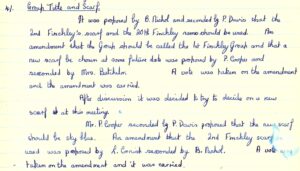 4/. Group Title and Scarf
It was proposed by B. Nichol and seconded by P. Davis that the
2nd Finchley's scarf and the 20th Finchley name should be used. An
amendment that the Group should be called the 1st Finchley Group and that a
new scarf be chosen at some future date was proposed by P. Cooper and
seconded by Mrs. Batchelor. A vote was taken on the amendment
and the amendment was carried.
After discussion it was decided to try to decide on a new
scarf at this meeting.
Mr. P. Cooper seconded by P. Davis proposed that the new scarf
should be sky blue. An amendment that the 2nd Finchley scarf
used was proposed by seconded by B. Nichol. A vote
taken on the amendment and it was carried.